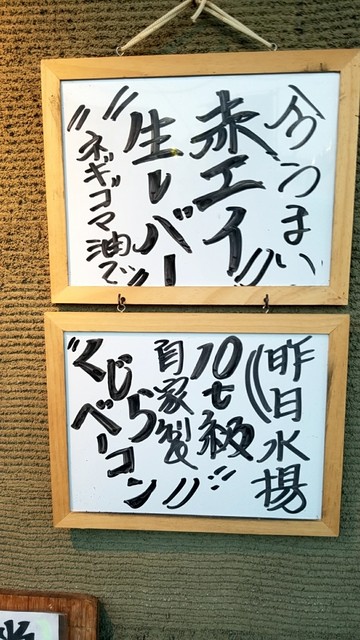 今うまい
赤エイ
生レバー
"ネギゴマ油で"
昨日水揚
10七級
自家製
"くじら
ベーコン"